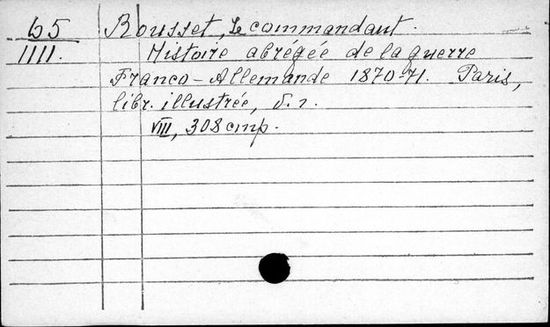 65 Rousset, Le commandant.
1111. Histoire abregée de la guerre
Franco-Allemande 1870-71. Paris,
libr. illustrée, s. d.
VIII, 308 стр.